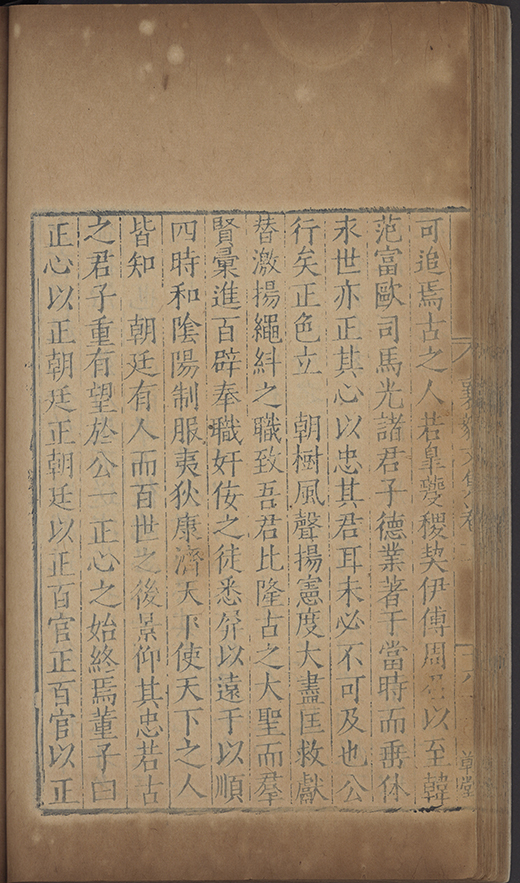 可追焉古之人若皐夔稷契伊傅周召以至韓
范富歐司馬光諸君子德業著于當時而垂休
永世亦正其心以忠其君耳未必不可及也公
行矣正色立 朝樹風聲揚憲度大盡匡救獻
替激揚繩糾之職致吾君比隆古之大聖而羣
賢彙進百辟奉職奸佞之徒悉屏以遠于以順
四時和陰陽制服夷狄康濟天下使天下之人
皆知 朝廷有人而百世之後景仰其忠若古
之君子重有望於公一正心之始終焉董子曰
正心以正朝廷正朝廷以正百官正百官以正
草堂